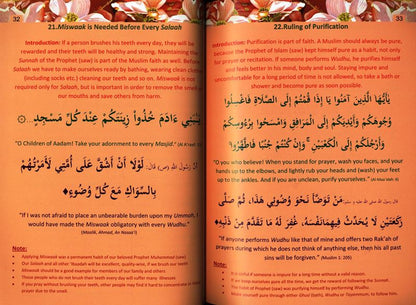 32
21.Miswaak is Needed Before Every Salaah
Introduction: If a person brushes his teeth every day, they will be
rewarded and their teeth will be healthy and strong. Maintaining the
Sunnah of the Prophet (saw) is part of the Muslim faith as well. Before
Salaah we have to make ourselves ready by bathing, wearing clean clothes
(including socks etc.) cleaning our teeth and so on. Miswaak is not
required only for Salaah, but is important in order to remove the smell of
our mouths and save others from harm.
يَٰبَنِىٓ ءَادَمَ خُذُوا۟ زِينَتَكُمْ عِندَ كُلِّ مَسْجِدٍ
"O Children of Aadam! Take your adornment to every Masjid."
قال رسول الله (ص) لَوْلَا أَنْ أَشُقَّ عَلَى أُمَّتِي لَأَمَرْتُهُمْ
بِالسِّوَاكِ مَعَ كُلِّ وُضُوءٍ
"If I was not afraid to place an unbearable burden upon my Ummah, I
would have made the Miswaak obligatory with every Wudhu."
(Maalik, Ahmad, An Nasai'i)
Note:
Applying Miswaak was a permanent habit of our beloved Prophet Muhammad (saw)
Our Salaah and all other 'Ibaadah will be excellent, quality-wise, if we brush our teeth
Miswaak should be a good example for members of our family and others
Those people who do not brush their teeth every day will suffer many illnesses
If you pray without brushing your teeth, other people may find it hard to concentrate in
prayer due to the smell.
33
22.Ruling of Purification
Introduction: Purification is part of faith. A Muslim should always be pure,
because the Prophet of Islam (saw) kept himself pure as a habit, not only
for prayer or repentance. If someone performs Wudhu, he purifies himself
and feels better in his mind, body and soul. Staying impure and
uncomfortable for a long period of time is not allowed, so take a bath or
shower and become pure as soon as possible.
يَٰٓأَيُّهَا الَّذِينَ آمَنُوا إِذَا قُمْتُمْ إِلَى الصَّلَاةِ فَاغْسِلُوا
وُجُوهَكُمْ وَأَيْدِيَكُمْ إِلَى الْمَرَافِقِ وَامْسَحُوا بِرُءُوسِكُمْ
وَأَرْجُلَكُمْ إِلَى الْكَعْبَيْنِ وَإِنْ كُنْتُمْ جُنُبًا فَاطَّهَّرُوا
"O you who believe! When you stand for prayer, wash your faces, and your
hands up to the elbows, and lightly rub your heads and (wash) your feet up
to the ankles. And if you are unclean, purify yourselves."
مَنْ تَوَضَّأَ نَحْوَ وُضُوئِي هَذَا، ثُمَّ صَلَّى
رَكْعَتَيْنِ لَا يُحَدِّثُ فِيهِمَا نَفْسَهُ، غُفِرَ لَهُ مَا تَقَدَّمَ مِنْ ذَنْبِهِ
"If anyone performs Wudhu like that of mine and offers two Rak'ah of
prayers during which he does not think of anything else, then his all past
sins will be forgiven." (Muslim 1: 205)
Note:
It is sinful if someone is impure for a long time without a valid reason.